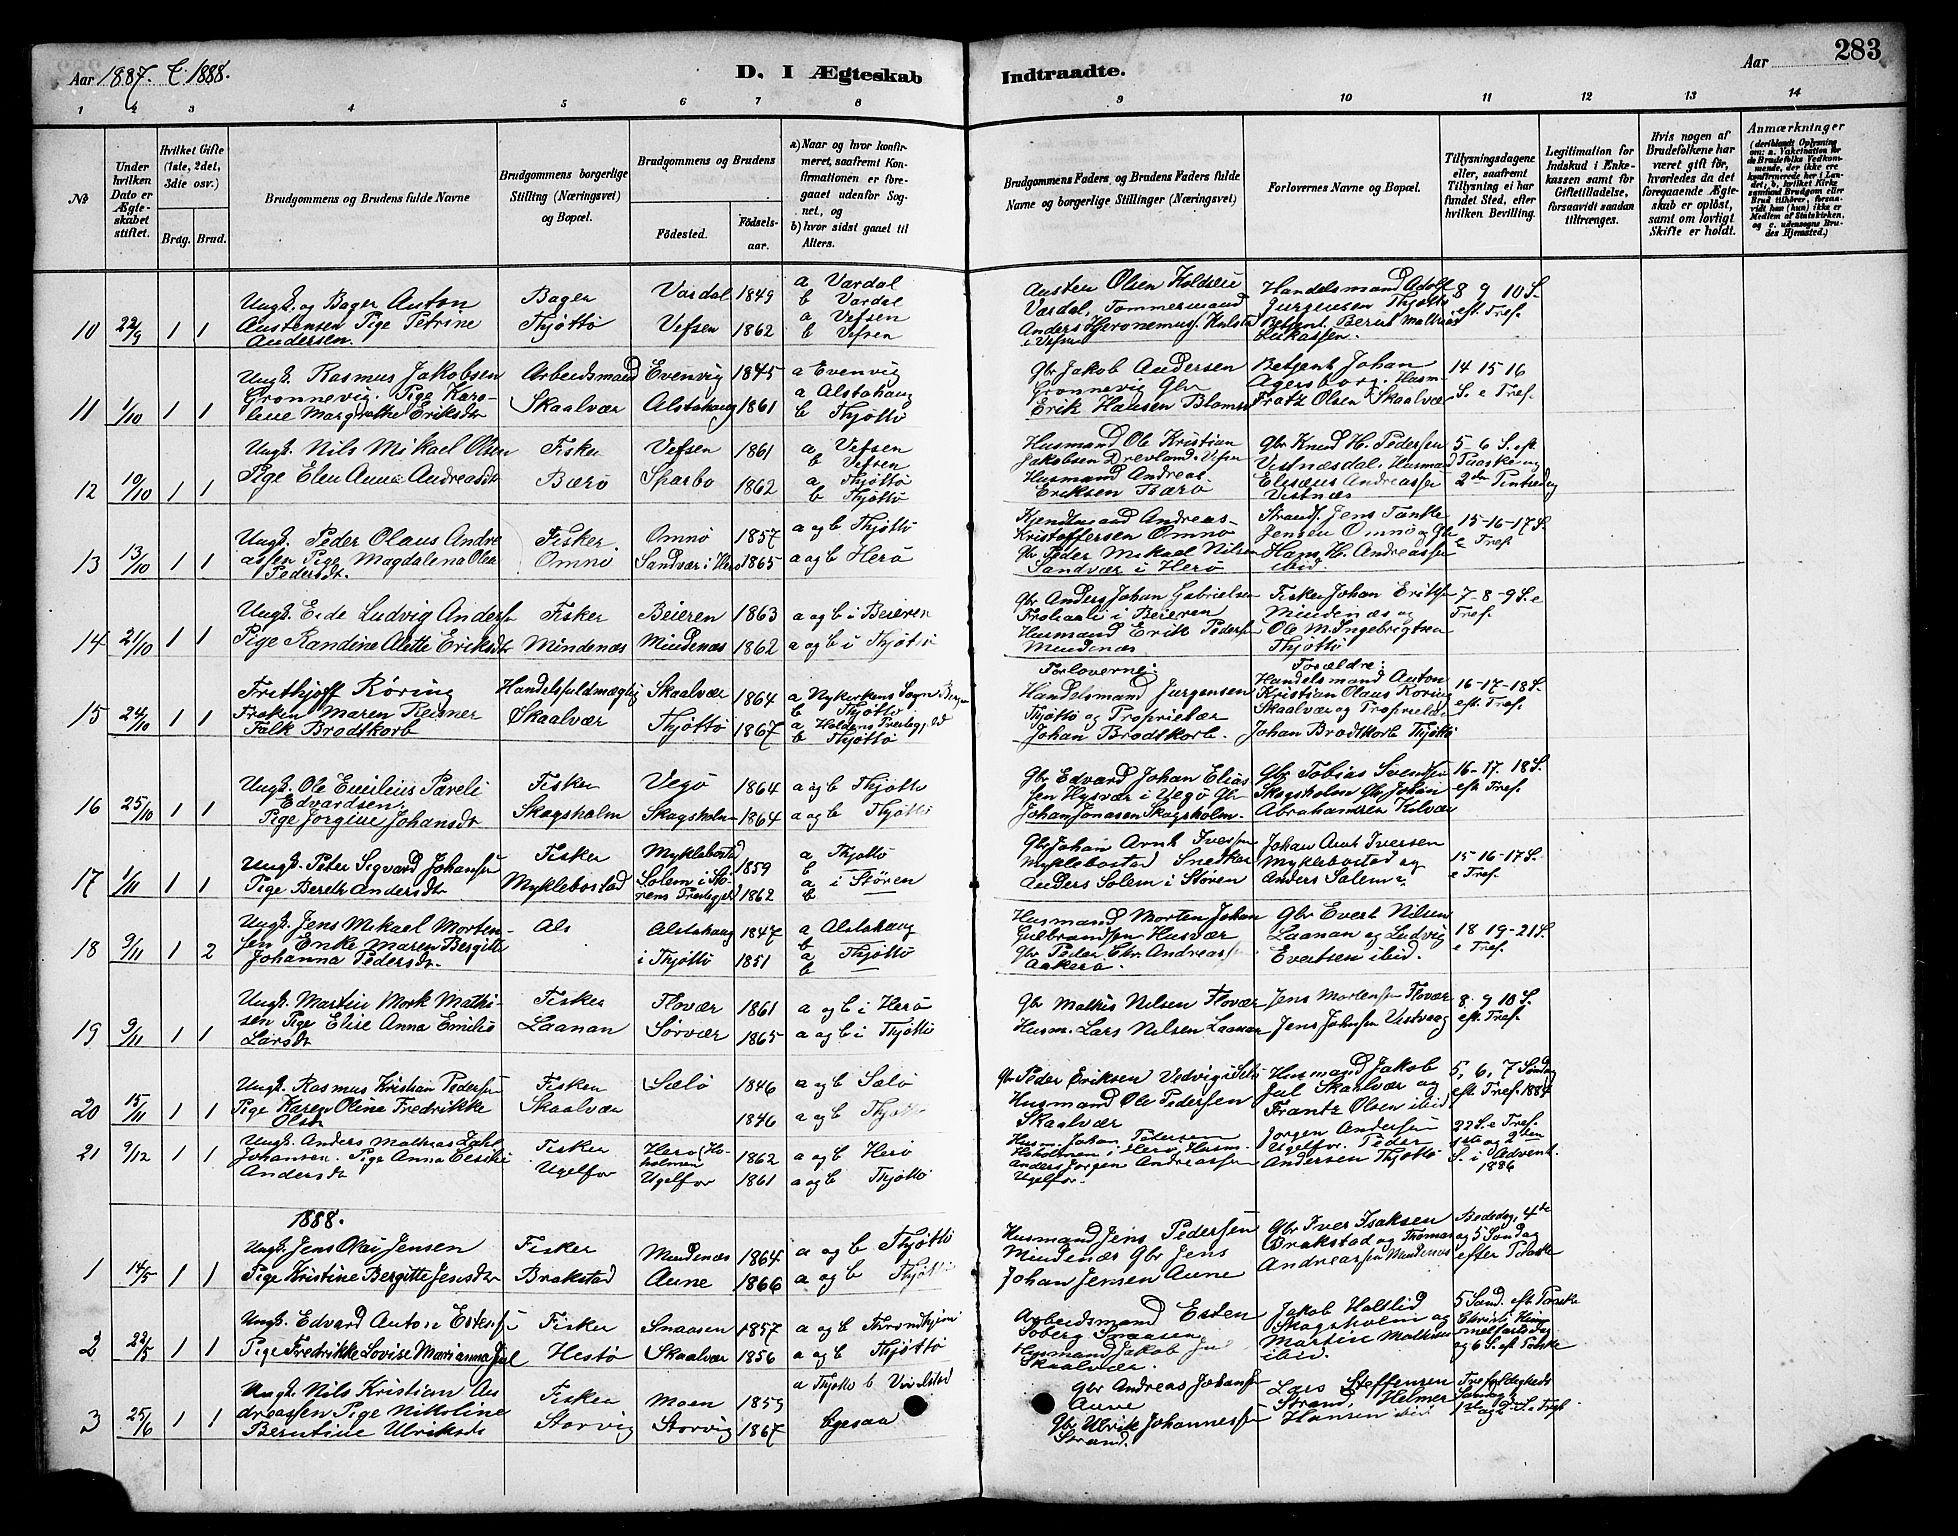 Aar 1887. & 1888.
D. I Ægteskab Indtraadte.
Aar
283
1 2 3 4 5 6 7 8 9 10 11 12 13 14
№
Under hvilken Dato er Ægteskabet stiftet.
Hvilket Gifte (1ste, 2det, 3die osv.)
Brdg. Brud.
Brudgommens og Brudens fulde Navne
Brudgommens borgerlige Stilling (Næringsvei) og Bopæl.
Brudgommens og Brudens
Fødested. Fødselsaar.
a) Naar og hvor konfirmeret, saafremt Konfirmationen er foregaaet udenfor Sognet, og
b) hvor sidst gaaet til Alters.
Brudgommens Faders og Brudens Faders fulde Navne og borgerlige Stillinger (Næringsvei)
Forlovernes Navne og Bopæl.
Tillysningsdagene eller, saafremt Tillysning ei har fundet Sted, efter hvilken Bevilling.
Legitimation for Indskud i Enkekassen samt for Giftetilladelse, forsaavidt saadan tiltrænges.
Hvis nogen af Brudefolkene har været gift før, hvorledes da det foregaaende Ægteskab er opløst, samt om lovligt Skifte er holdt.
Anmærkninger (deriblandt Oplysning om: a. Vakcination for de Brudefolks Vedkommende, der ikke ere konfirmerede her i Landet; b. hvilket Kirkesamfund Brudgom eller Brud tilhører, forsaavidt han (hun) ikke er Medlem af Statskirken, og c. udensogns Brudes Hjemsted.)
10 22/9 1 1
Ungk. og Bager Anton
Austensen Pige Petrine
Andersen.
Bager
Thjøttø
Vardal 1849
Vefsen 1862
a Vardal
b Vardal
a Vefsen
b Vefsen
Austen Olsen
Vardal, Tømmermand
Anders Hieronemus.
i Vefsen
Handelsmand Adolf
Jurgensen Thjøttø
Betjent Bernt Mathias
Lukassen.
8 9 10 S.
eft. Tref.
11 1/10 1 1
Ungk. Rasmus Jakobsen
Grønnevig. Pige Kare-
line Margrethe Eriksdt
Arbeidsmand
Skaalvær
Evenvig 1845
Alstahaug 1861
a Evenvig
a Alstahaug
b Thjøttø
Gbr Jakob Andersen
Grønnevig Gbr
Erik Hansen
Betjent Johan
Agersborg. Husm.
Olsen Skaalvær
14 15 16
S. e Tref.
12 10/10 1 1
Ungk. Nils Mikael Olsen
Pige Elen Anna Andreasdt
Fisker
Bærø
Vefsen 1861
Sparbo 1862
a Vefsen
b Vefsen
a Thjøttø
b Thjøttø
Husmand Ole Kristian
Jakobsen Drevland i Vefsen
Husmand Andreas
Eriksen Bærø
Gbr Knud H. Pedersen
Vestnæsdal. Husmand
Elisæus Andreassen
Vistnæs
5-6 S. eft
Paaske og
2den Pintsedag
13 13/10 1 1
Ungk. Peder Olaus Andre
assen Pige Magdalena Olea
Pedersdt.
Fisker
Omnø
Omnø 1857
Sandvær i Herø 1865
a og b Thjøttø
a og b Herø
Andreas
Kristoffersen Omnø
Gbr. Peder Mikael Nilsen
Sandvær i Herø
Strands. Jens
Jensen Omnø og Gbr
Hans H. Andreassen
ibid.
15-16-17 S.
e Tref.
14 21/10 1 1
Ungk. Ludvig Anders
Pige Randine Alette Eriksdt
Fisker
Mindenæs
Beieren 1863
Mindenæs 1862
a og b i Beieren
a og b i Thjøttø
Gbr. Anders Johan Gabrielsen
i Beieren
Husmand Erik Pedersen
Mindenæs
Fisker Johan Eriksen
Mindenæs og
Ole M. Ingebrigtsen
Thjøttø
7-8-9 S. e
Tref.
15 24/10 1 1
Frithjoff Røring
Frøken Maren Reisner
Falk Brodtkorb
Handelsfuldmægtig
Skaalvær
Skaalvær 1864
Thjøttø 1867
a Nykirkens Sogn i Bergen
b Thjøttø
a
b Thjøttø
Forloverne:
Handelsmand Jurgensen
Thjøttø og Proprietær
Johan Brodtkorb.
Forældre:
Handelsmand Anton
Kristian Olaus Røring
Skaalvær og Proprietær
Johan Brodtkorb Thjøttø
16-17-18 S.
eft. Tref.
16 25/10 1 1
Ungk. Ole Emilius Pareli
Edvardsen.
Pige Jorgine Johansdt
Fisker
Skogsholm
Vegø 1864
Skogsholm 1864
a og b Thjøttø
a og b Thjøttø
Gbr Edvard Johan Elias
sen Hysvær i Vegø Gbr
Johan Jonassen Skogsholm
Gbr Tobias Svendsen
Skogsholm Gbr Johan
Abrahamsen Kilvær
16-17. 18 S.
eft Tref.
17 1/11 1 1
Ungk. Peter Sigvard Johansen
Pige Beret Andersdt
Fisker
Myklebostad
Myklebostad 1859
Solem i Stø-
rens Prestegjeld 1862
a Thjøttø
b
a i Støren
b —
Gbr Johan Arnt Iversen
Myklebostad Snedker
Anders Solem i Støren
Johan Arnt Iversen
Myklebostad og
Anders Solem
15-16-17 S.
e Tref.
18 9/11 1 2
Ungk. Jens Mikael Morten-
sen Enke Maren Bergitte
Johanna Pedersdt.
Als
Alstahaug 1847
i Thjøttø 1851
a Alstahaug
b
a Thjøttø
b —
Husmand Morten Johan
Gulbrandsen Husvær
Gbr Peder Chr. Andreassen
Aakerø.
Gbr Evert Nilsen
Laanan og Ludvig
Evertsen ibid.
18 19-21 S.
e Tref.
19 9/11 1 1
Ungk. Martin Mork Mathi-
sen Pige Elise Anna Emilie
Larsdt
Fisker
Laanan
Flovær 1861
Sørvær 1865
a og b i Herø
a og b i Thjøttø
Gbr Mathis Nilsen Flovær
Husm. Lars Nilsen Laanan
Jens Mortensen Flovær
Jens Johnsen Vestvaag
8. 9 10 S.
eft. Tref.
20 15/11 1 1
Ungk. Rasmus Kristian Pedersen
Pige Karen Olina Fredrikke
Olsdt
Fisker
Skaalvær
Sælø 1846
1846
a og b Sælø
a og b Thjøttø
Gbr Peder Eriksen
Husmand Ole Pedersen
Skaalvær
Husmand Jakob
Jul Skaalvær og
Frantz Olsen ibid
5, 6, 7 Søndag
eft Tref. 1884
21 9/12 1 1
Ungk. Anders Mathias Zahl
Johansen. Pige Anna Cesilie
Andersdt
Fisker
Ugelfor
Herø (Ho-
holmen 1862
Ugelfor 1861
a og b Herø
a og b Thjøttø
Husm. Johan Pedersen
Hoholmen i Herø, Husm.
Anders Jørgen Andreassen
Ugelfor.
Jørgen Andersen
Ugelfor. Peder
Andersen Thjøttø
22 S. e Tref.
1ste og 2den
S. i Advent.
1886
1888.
1 14/5 1 1
Ungk. Jens Olai Jensen
Pige Kristine Bergitte Jensdt
Fisker
Brakstad
Mindenæs 1864
Aune 1866
a og b Thjøttø
a og b Thjøttø
Husmand Jens Pedersen
Mindenæs Gbr Jens
Johan Jensen Aune
Gbr Iver Isaksen
Brakstad og Thomas
Andreassen Mindenæs
Bededag, 4de
og 5 Søndag
efter Paaske
2 22/5 1 1
Ungk. Edvard Anton Estensen
Pige Fredrikke Lovise Marianna Jul
Fisker
Hestø
Snaasen 1857
Skaalvær 1856
a og b Throndhjem
a og b Thjøttø
Arbeidsmand Esten
Soberg Snaasen
Husmand Jakob Jul
Skaalvær.
Jakob Holtlid
Skogsholm og
Martin Mathisen
ibid.
5 Sønd. eft Paaske
Christi Him-
melfartsdag
og 6 S. eft Paaske
3 25/6 1 1
Ungk. Nils Kristian An
dreassen Pige Nikoline
Berntine Ulriksdt
Fisker
Storvig
Moen 1859
Storvig 1867
a Thjøttø b Vivelstad
Gbr Andreas Johansen
Aune
Gbr Ulrik Johannessen
Strand.
Lars Steffensen
Strand, Helmer
Hansen ibid
Trefoldigheds
Søndag,
1st og 2 S. e Tref.